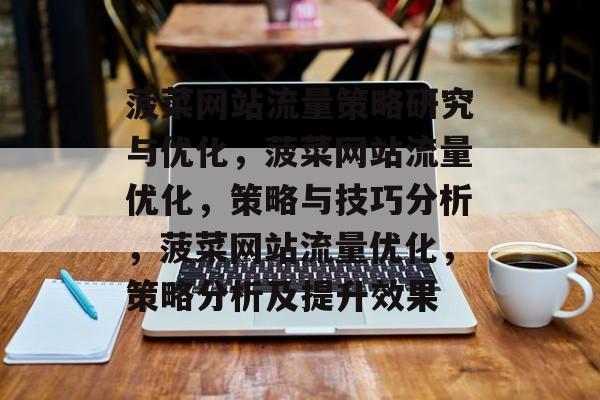 菠菜网站流量策略研究
与优化，菠菜网站流量
优化，策略与技巧分析
，菠菜网站流量优化，
策略分析及提升效果